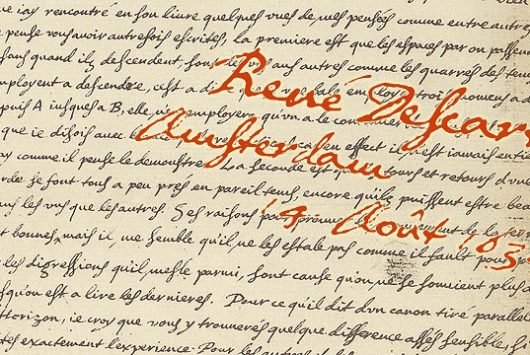 ue iay rencontré en son livre quelques vnes de mes pensées comme entre autres
e pense vous avoir autresfois escrites, la premiere est que les espaces par ou passent
ans quand ilz descendent, sont les vns aux autres comme les quarrés des tem
mployent a descendre, c'est a di que bale employe trois momens a
puis A iusques a B, elle n'en employera qu'vn a le continuer
René Descar
que ie disois avec en effect il n'est iamais entie
Amsterdam
ay comme il pense le demonstrer. La seconde est que tours et retours d'v
rde se font tous a peu pres en pareil tems, encore qu'ilz puissent estre beau
ns les vns que les autres. Ses raisons pour de la terre
14 Août 163
t bonnes, mais il me semble qu'il ne les estale pas comme il fault pour
les digressions qu'il mesle parmi, sont cause qu'on ne se souvient plus d
squ'on est a lire les dernieres. Pour ce qu'il dit d'vn canon tiré parallele
Horizon, ie croy que vous y trouverés quelque difference assés sensible, s
tes exactement l'experience. Pour les autres